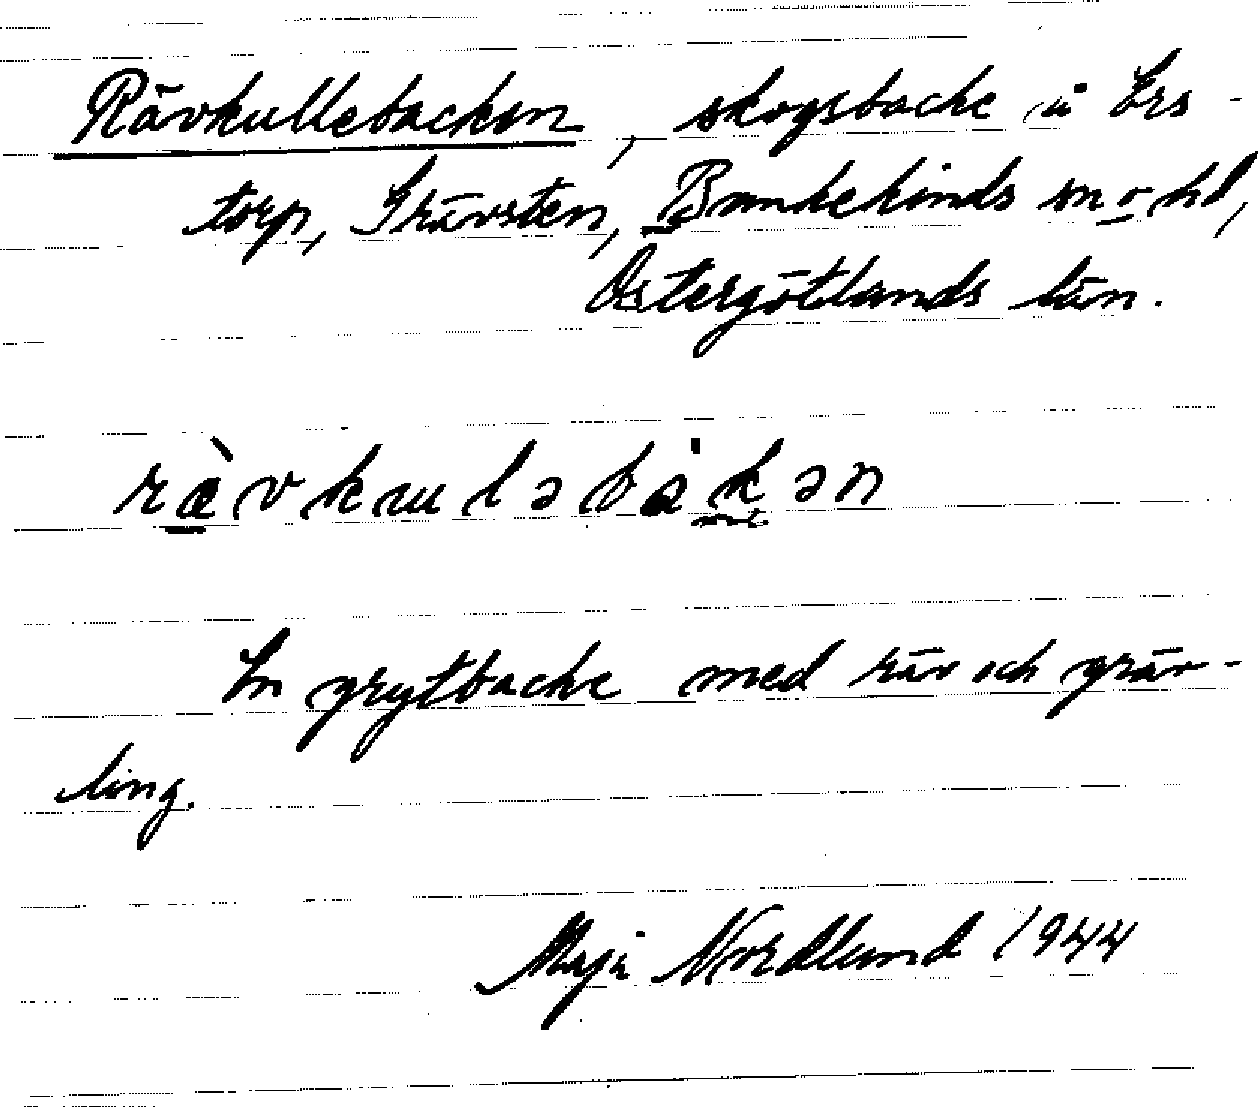 Rävkullebacken, skogsbacke å Ers-
torp, Grävsten, Bankekinds sn o hd,
Östergötlands län.
rævkuləbakən
En grytbacke med räv och gräv-
ling.
Maja Nordlund 1944